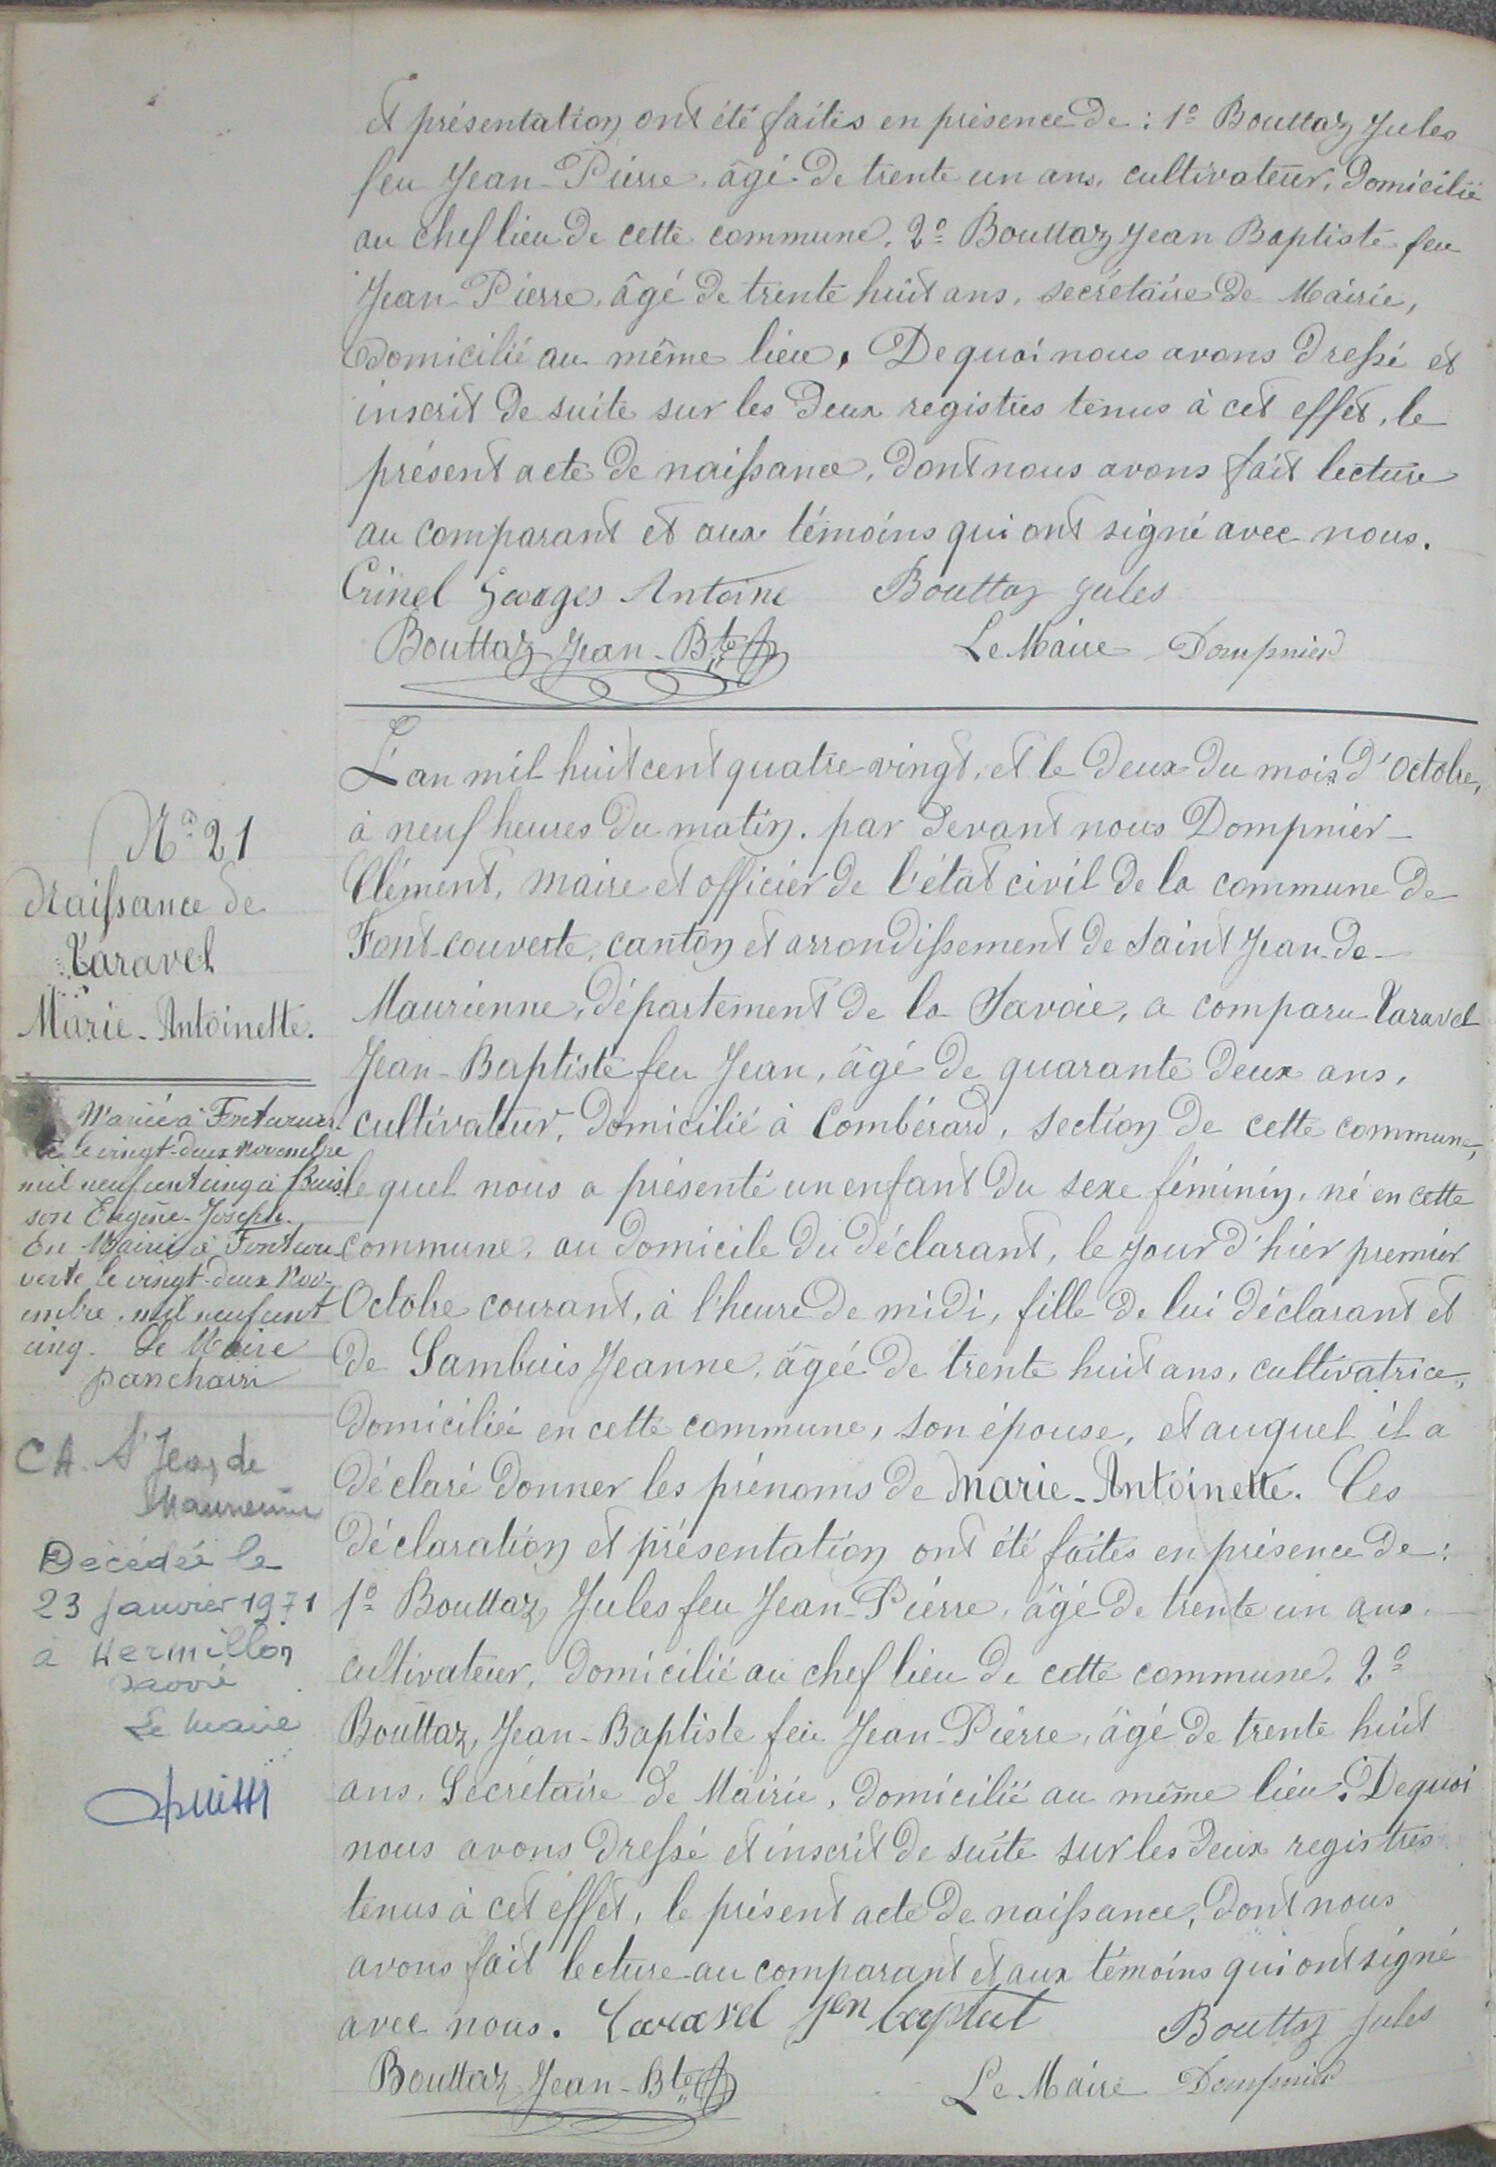 et présentation ont été faites en présence de : 1º Bouttaz Jules
feu Jean-Pierre, âgé de trente un ans, cultivateur, domicilié
au chef lieu de cette commune. 2º Bouttaz Jean Baptiste feu
Jean-Pierre, âgé de trente huit ans, secrétaire de Mairie,
domicilié au même lieu. De quoi nous avons dressé et
inscrit de suite sur les deux registres tenus à cet effet, le
présent acte de naissance, dont nous avons fait lecture
au comparant et aux témoins qui ont signé avec nous.
Crinel Georges Antoine Bouttaz Jules
Bouttaz Jean-Bte Le Maire Dompnier
Nº 21
Naissance de
Taravel
Marie-Antoinette.
Mariée à Fontcouver-
te le vingt-deux novembre
mil neuf cent cinq à Buis
son Eugène-Joseph.
En Mairie à Fontcou-
verte le vingt-deux Nov-
embre, mil neuf cent
cinq. Le Maire
CA. St Jean de
Maurienne
Décédée le
23 janvier 1971
à Hermillon
Savoie
Le Maire
L'an mil huit cent quatre vingt, et le deux du mois d'Octobre,
à neuf heures du matin, par devant nous Dompnier
Clément, maire et officier de l'état civil de la commune de
Font-couverte, canton et arrondissement de Saint Jean-de-
Maurienne, département de la Savoie, a comparu Taravel
Jean-Baptiste feu Jean, âgé de quarante deux ans,
cultivateur, domicilié à Combérard, section de cette commune,
le quel nous a présenté un enfant du sexe féminin, né en cette
commune, au domicile du déclarant, le jour d'hier premier
Octobre courant, à l'heure de midi, fille de lui déclarant et
de Sambuis Jeanne, âgée de trente huit ans, cultivatrice,
domiciliée en cette commune, son épouse, et auquel il a
déclaré donner les prénoms de Marie-Antoinette. Ces
déclaration et présentation ont été faites en présence de :
1º Bouttaz, Jules feu Jean-Pierre, âgé de trente un ans,
cultivateur, domicilié au chef lieu de cette commune, 2º
Bouttaz, Jean-Baptiste feu Jean-Pierre, âgé de trente huit
ans, Secrétaire de Mairie, domicilié au même lieu. De quoi
nous avons dressé et inscrit de suite sur les deux registres
tenus à cet effet, le présent acte de naissance, dont nous
avons fait lecture au comparant et aux témoins qui ont signé
avec nous. Taravel Jen baptist Bouttaz Jules
Bouttaz Jean-Bte Le Maire Dompnier